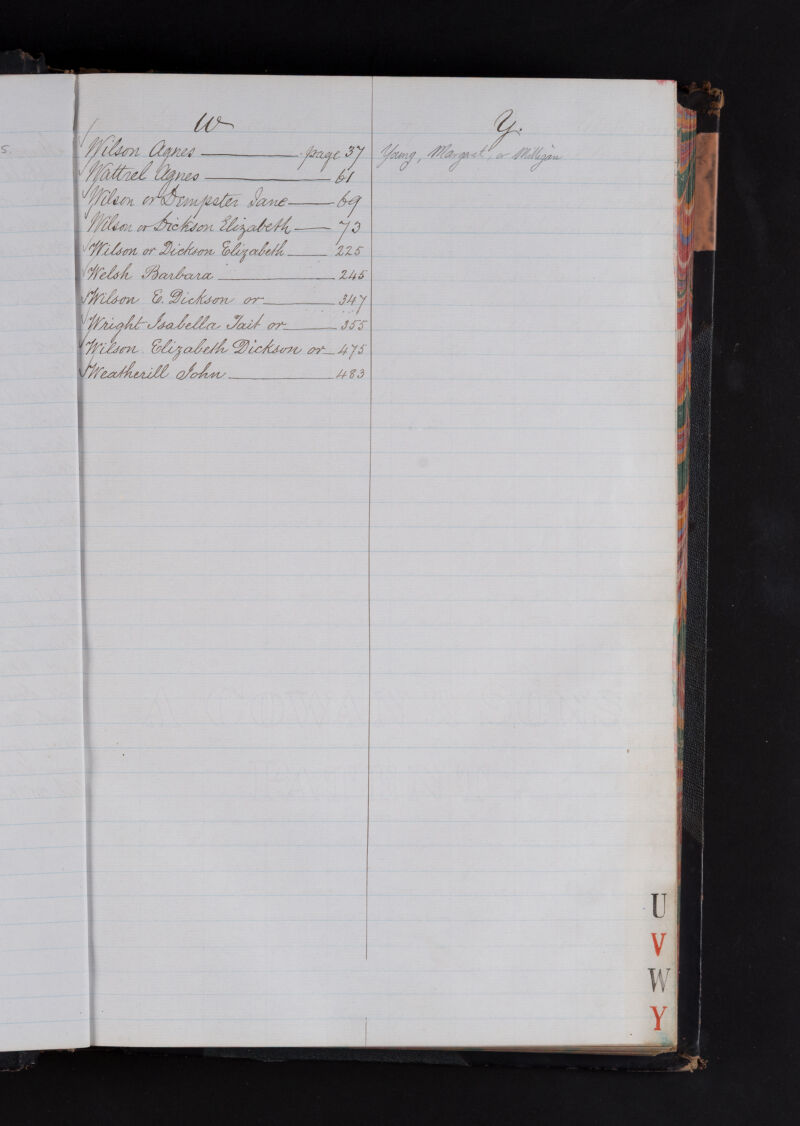 s.
W
Wilson Agnes page 37
Wattrel Agnes 61
Wilson or Dempster Jane 69
Wilson or Dickson Elizabeth 73
Wilson or Dickson Elizabeth 225
Welsh Barbara 245
Wilson E. Dickson or 347
Wright Isabella Tait or 355
Wilson Elizabeth Dickson or 475
Weatherill John 483
Y.
Young, Margaret, or Milligan
U
V
W
Y